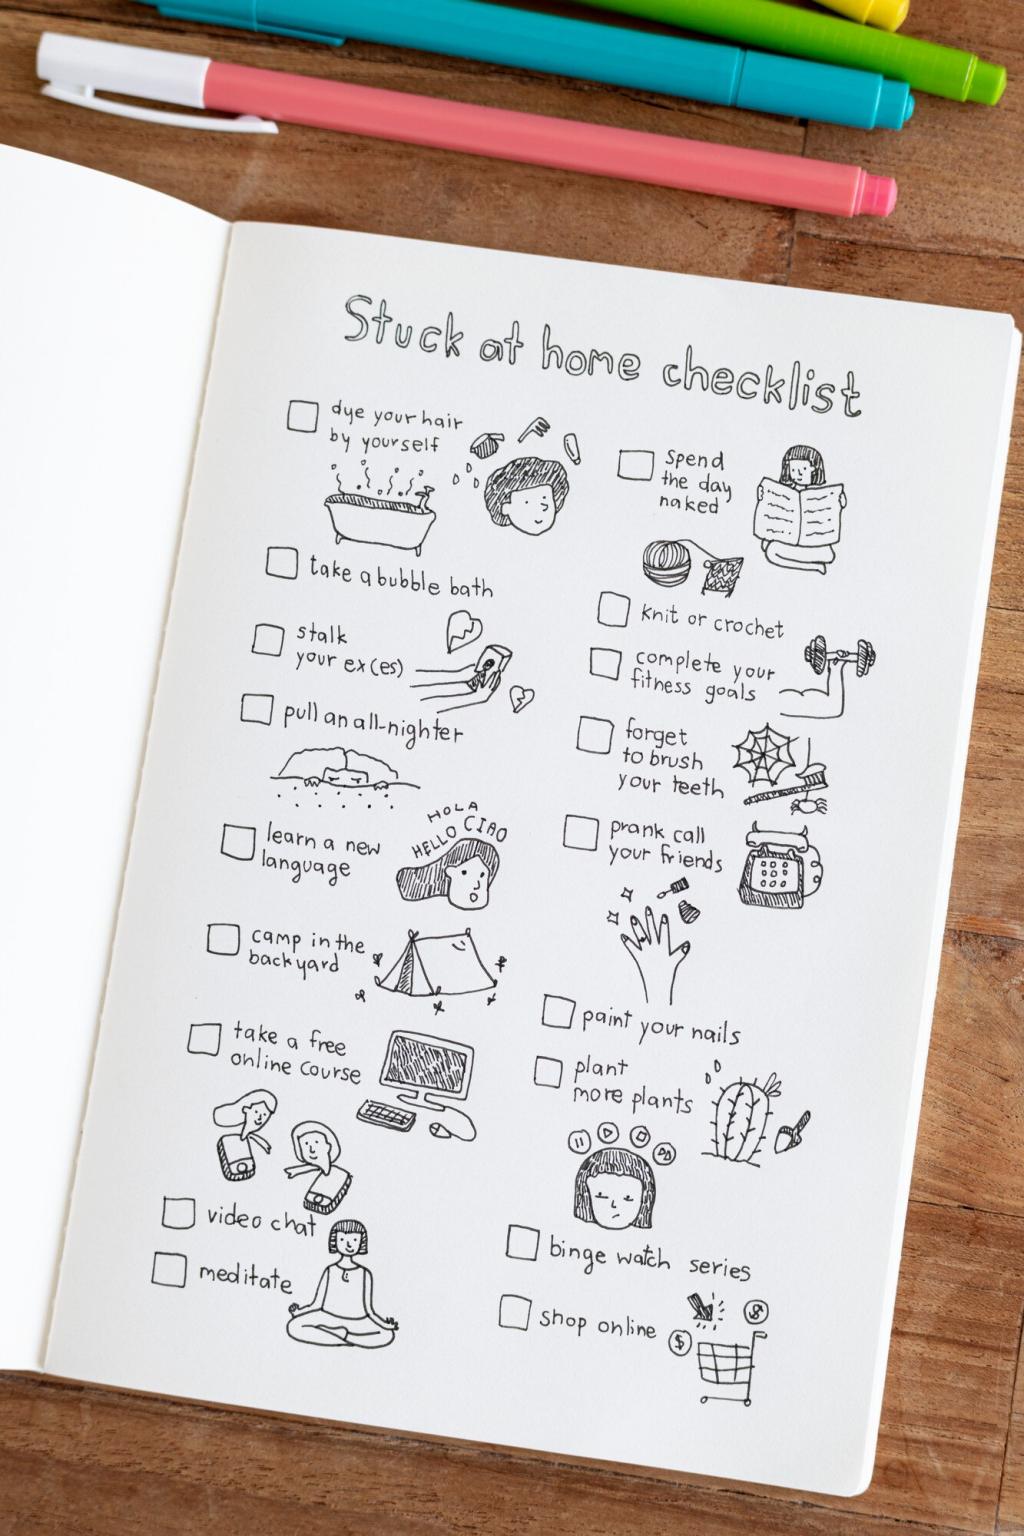 Stuck at home checklist
dye your hair
by yourself
take a bubble bath
stalk
your ex(es)
pull an all-nighter
HOLA
HELLO CIAO
learn a new
language
camp in the
backyard
take a free
online course
video chat
meditate
spend
the day
naked
knit or crochet
complete your
fitness goals
forget
to brush
your teeth
prank call
your friends
paint your nails
plant
more plants
binge watch series
shop online
$
$